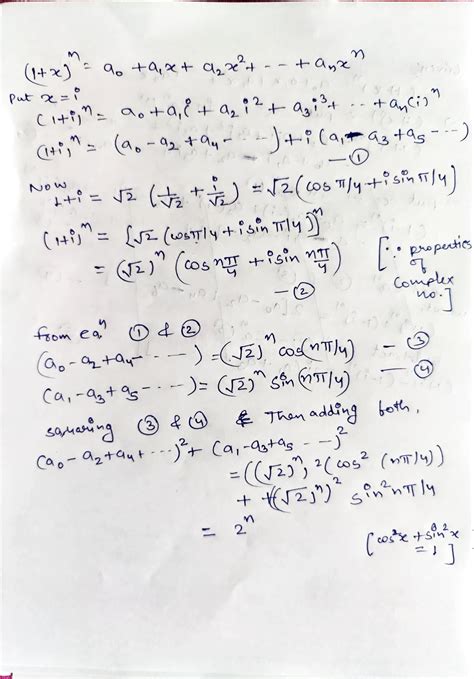 (1+x)^n = a₀ + a₁x + a₂x² + --- + aₙx^n
Put x = i
(1+i)^n = a₀ + a₁i + a₂i² + a₃i³ + --- + aₙ(i)^n
(1+i)^n = (a₀ - a₂ + a₄ - ---) + i(a₁ - a₃ + a₅ ---)
— ①
Now
1+i = √2 (1/√2 + i/√2) = √2 (cos π/4 + i sin π/4)
(1+i)^n = {√2 (cos π/4 + i sin π/4)}^n
= (√2)^n (cos nπ/4 + i sin nπ/4) [∵ properties of complex no.]
— ②
from eqⁿ ① & ②
(a₀ - a₂ + a₄ - ----) = (√2)^n cos(nπ/4) — ③
(a₁ - a₃ + a₅ - ---) = (√2)^n sin(nπ/4) — ④
squaring ③ & ④ & Then adding both,
(a₀ - a₂ + a₄ + ---)² + (a₁ - a₃ + a₅ ---)²
= ((√2)^n)² (cos² (nπ/4))
+ ((√2)^n)² sin² nπ/4
= 2^n [cos²x + sin²x = 1]